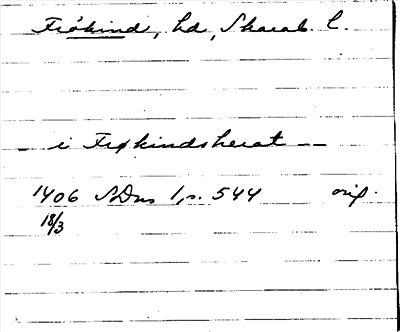 Frökind, hd, Skarab. l.
— i Frøkindsherat — —
1406 SDns 1, s. 544 orig.
18/3